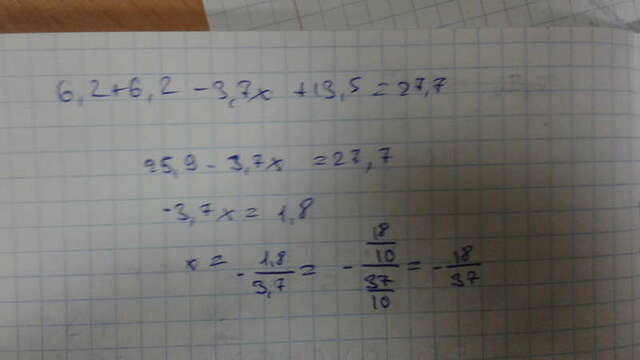 6,2+6,2 -3,7x +13,5 = 27,7
25,9 - 3,7x = 27,7
-3,7x = 1,8
x = - 1,8/3,7 = - (18/10)/(37/10) = - 18/37